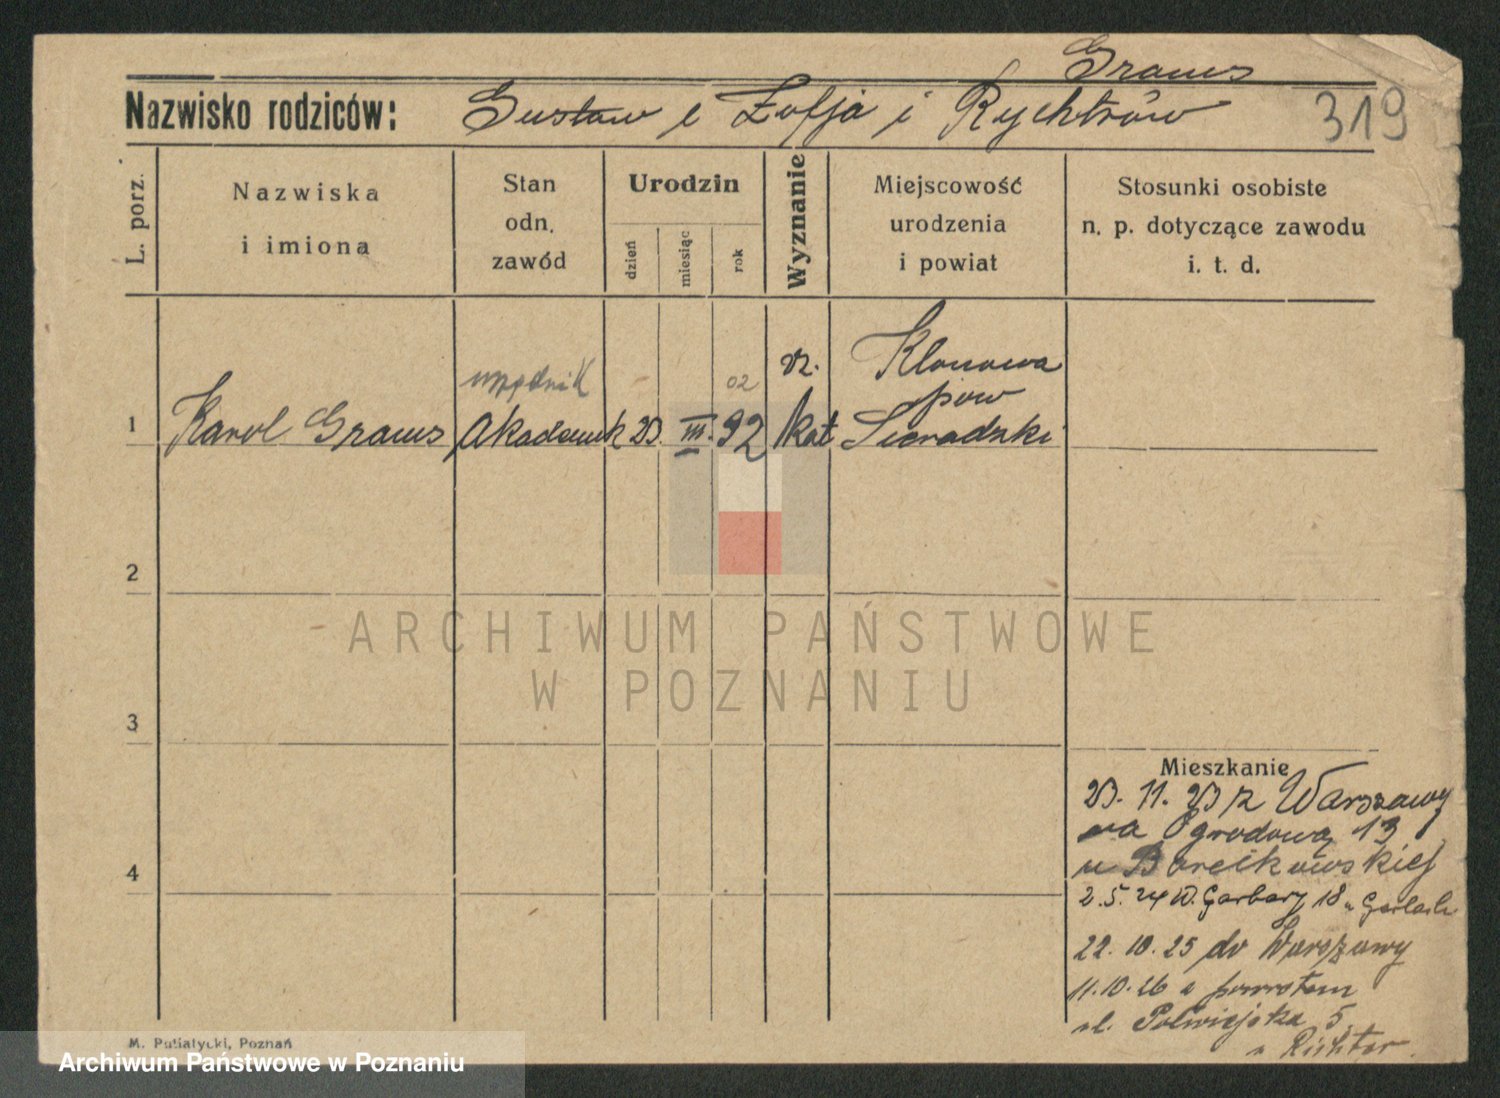 Grams
Nazwisko rodziców: Gustaw i Zofja i Rychtrów 319
L. porz.
Nazwiska
i imiona
Stan
odn.
zawód
Urodzin
dzień
miesiąc
rok
Wyznanie
Miejscowość
urodzenia
i powiat
Stosunki osobiste
n. p. dotyczące zawodu
i. t. d.
1 Karol Grams
urzędnik
Akademik
III. 02
92
rz.
kat
Klonowa
pow
Sieradzki
2
3
4
ARCHIWUM PAŃSTWOWE
W POZNANIU
Mieszkanie
11. z Warszawy
na Ogrodową 13
u
2.5.24 W. Garbary 18 u Gerlach
22.10.25 do Warszawy
11.10.26 z powrotem
ul. Półwiejska 5
u Richter
M. Putiatycki, Poznań
Archiwum Państwowe w Poznaniu